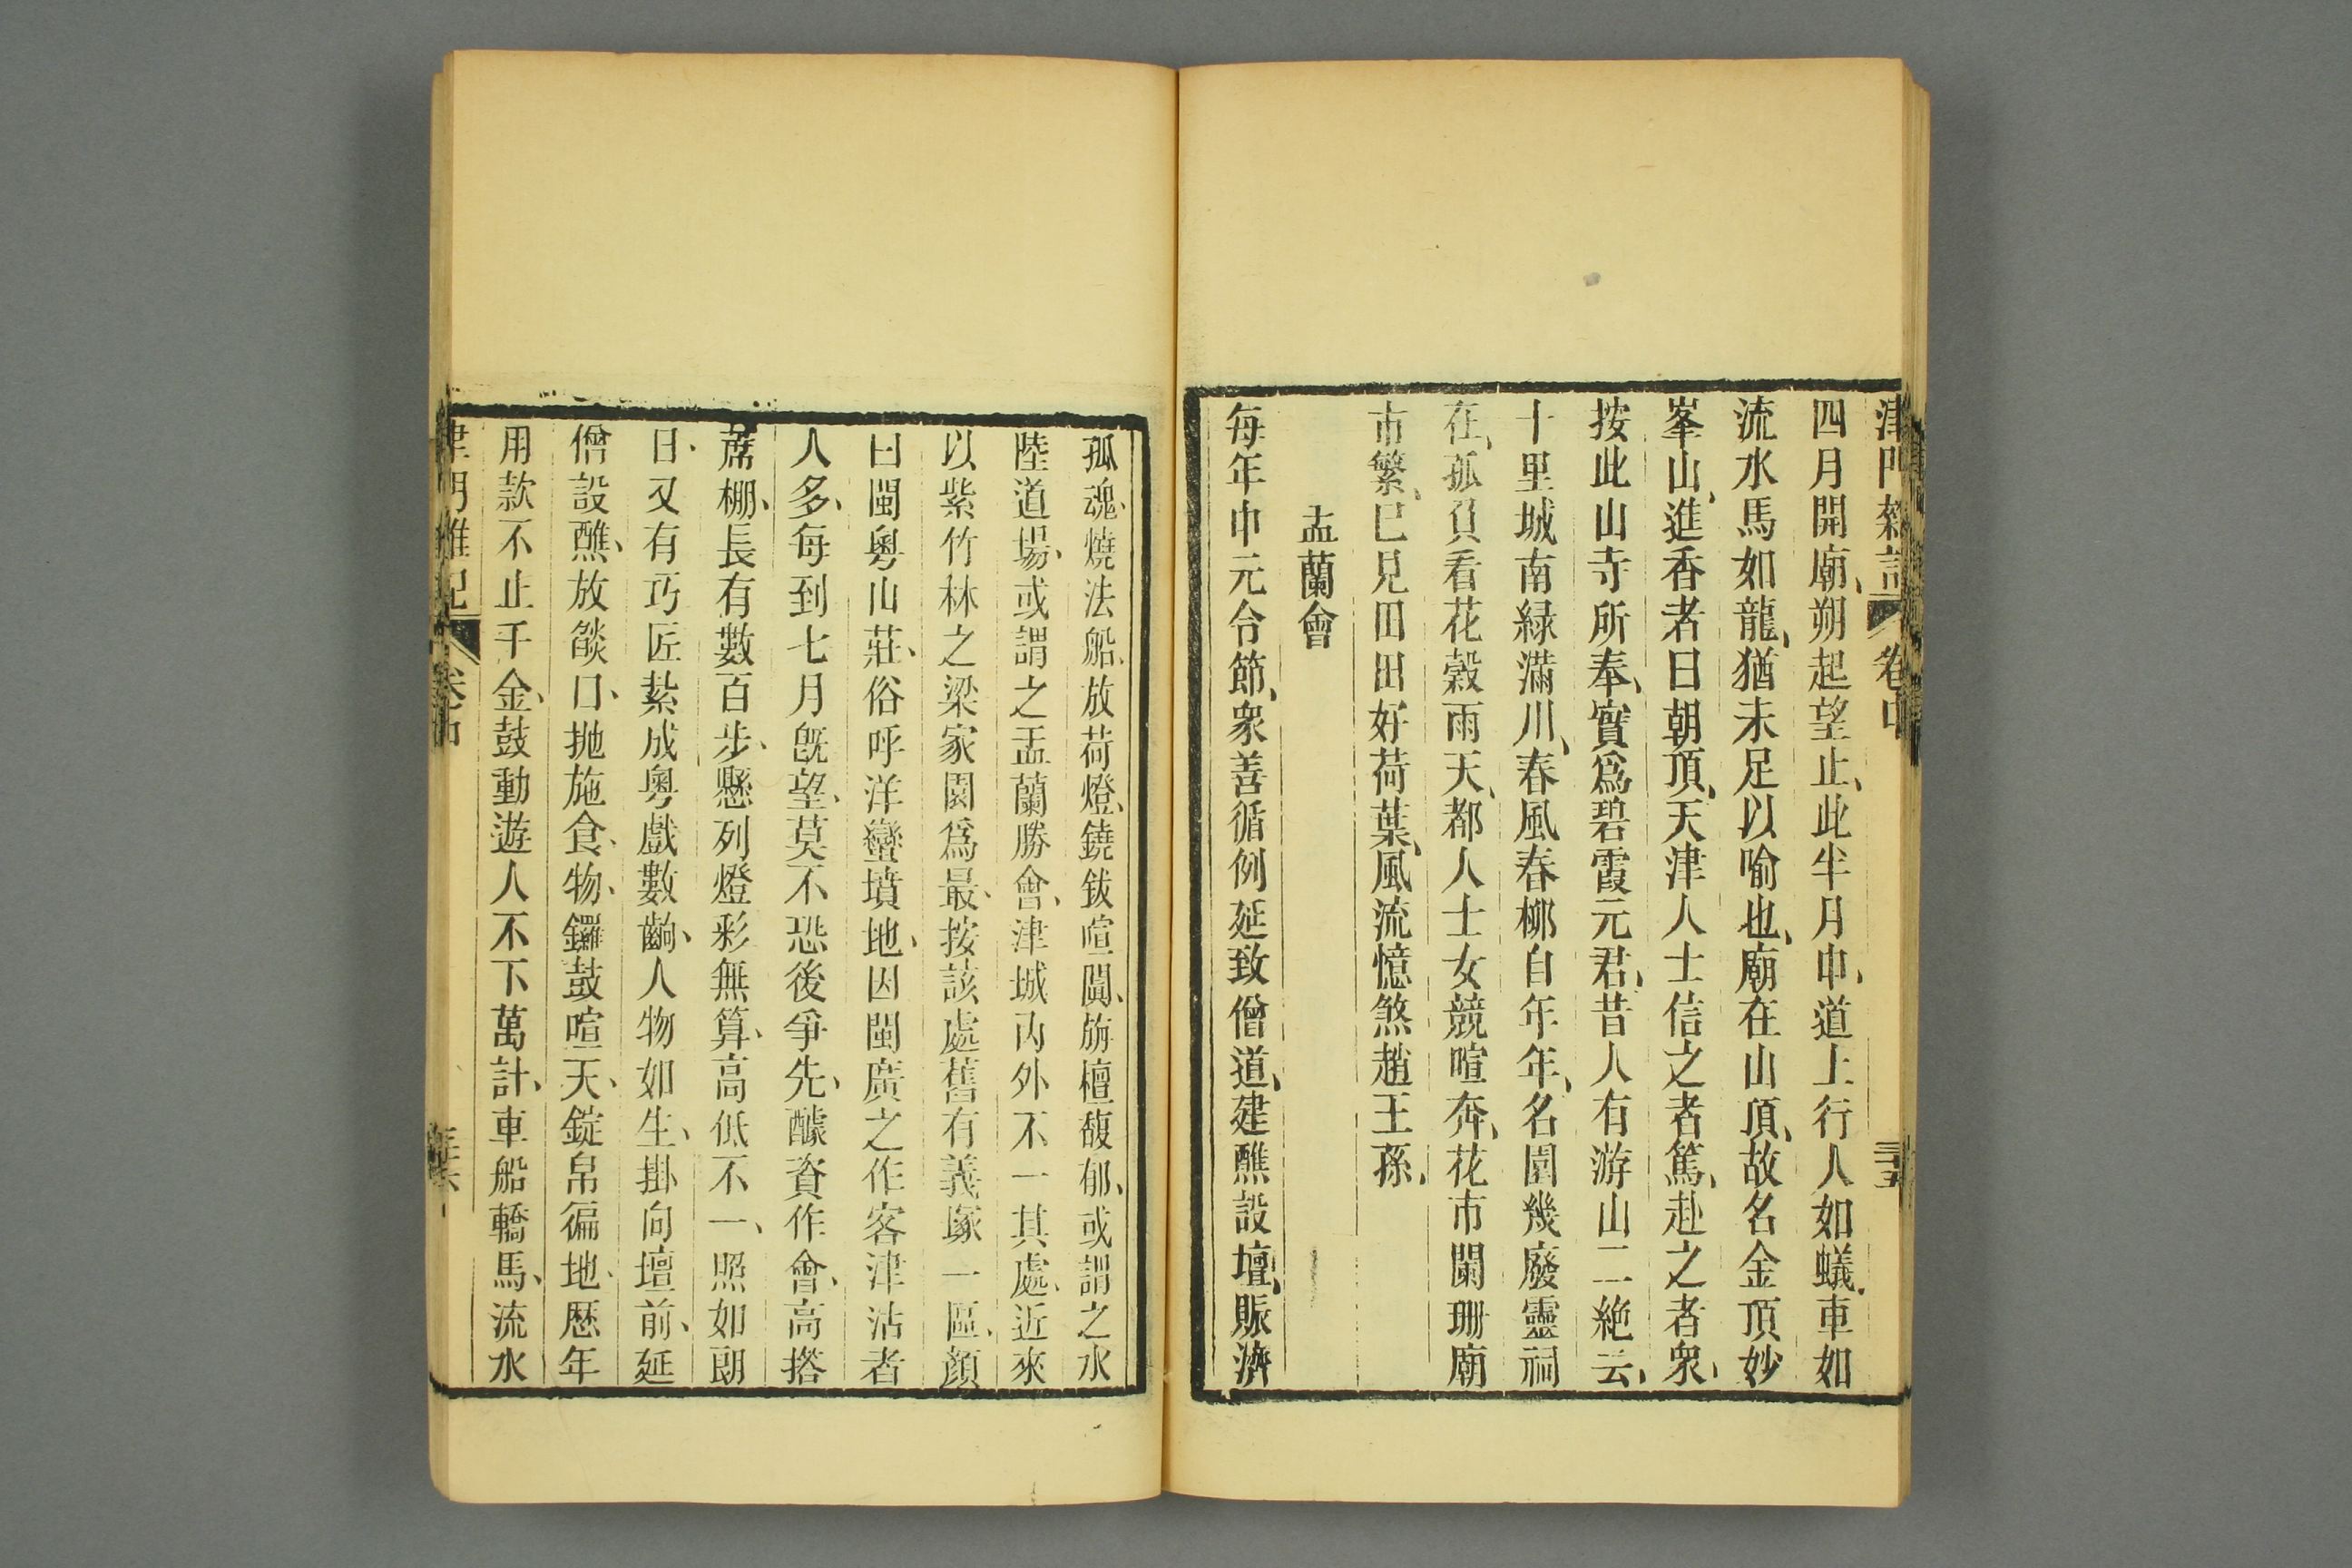 津門雜記 卷中 三十五
四月開廟、朔起望止、此半月中、道上行人如蟻、車如
流水馬如龍、猶未足以喻也、廟在山頂、故名金頂妙
峯山、進香者曰朝頂、天津人士信之者篤、赴之者衆、
按此山寺所奉、實爲碧霞元君、昔人有游山二絶云、
十里城南緑滿川、春風春柳自年年、名園幾廢靈祠
在、孤負看花穀雨天、都人士女競喧奔、花市闌珊廟
市繁、已見田田好荷葉、風流憶煞趙王孫、
盂蘭會
每年中元令節、衆善循例延致僧道、建醮設壇、賑濟
孤魂、燒法船、放荷燈、鐃鈸喧闐、旃檀馥郁、或謂之水
陸道場、或謂之盂蘭勝會、津城內外不一其處、近來
以紫竹林之梁家園爲最、按該處舊有義塚一區、顏
曰閩粵山莊、俗呼洋蠻墳地、因閩廣之作客津沽者
人多、每到七月旣望、莫不恐後爭先、醵資作會、高搭
蓆棚、長有數百步、懸列燈彩無算、高低不一、照如朗
日、又有巧匠紮成粵戲數齣、人物如生、掛向壇前、延
僧設醮、放燄口、拋施食物、鑼鼓喧天、錠帛徧地、歷年
用款不止千金、鼓動遊人不下萬計、車船轎馬、流水
津門雜記 卷中